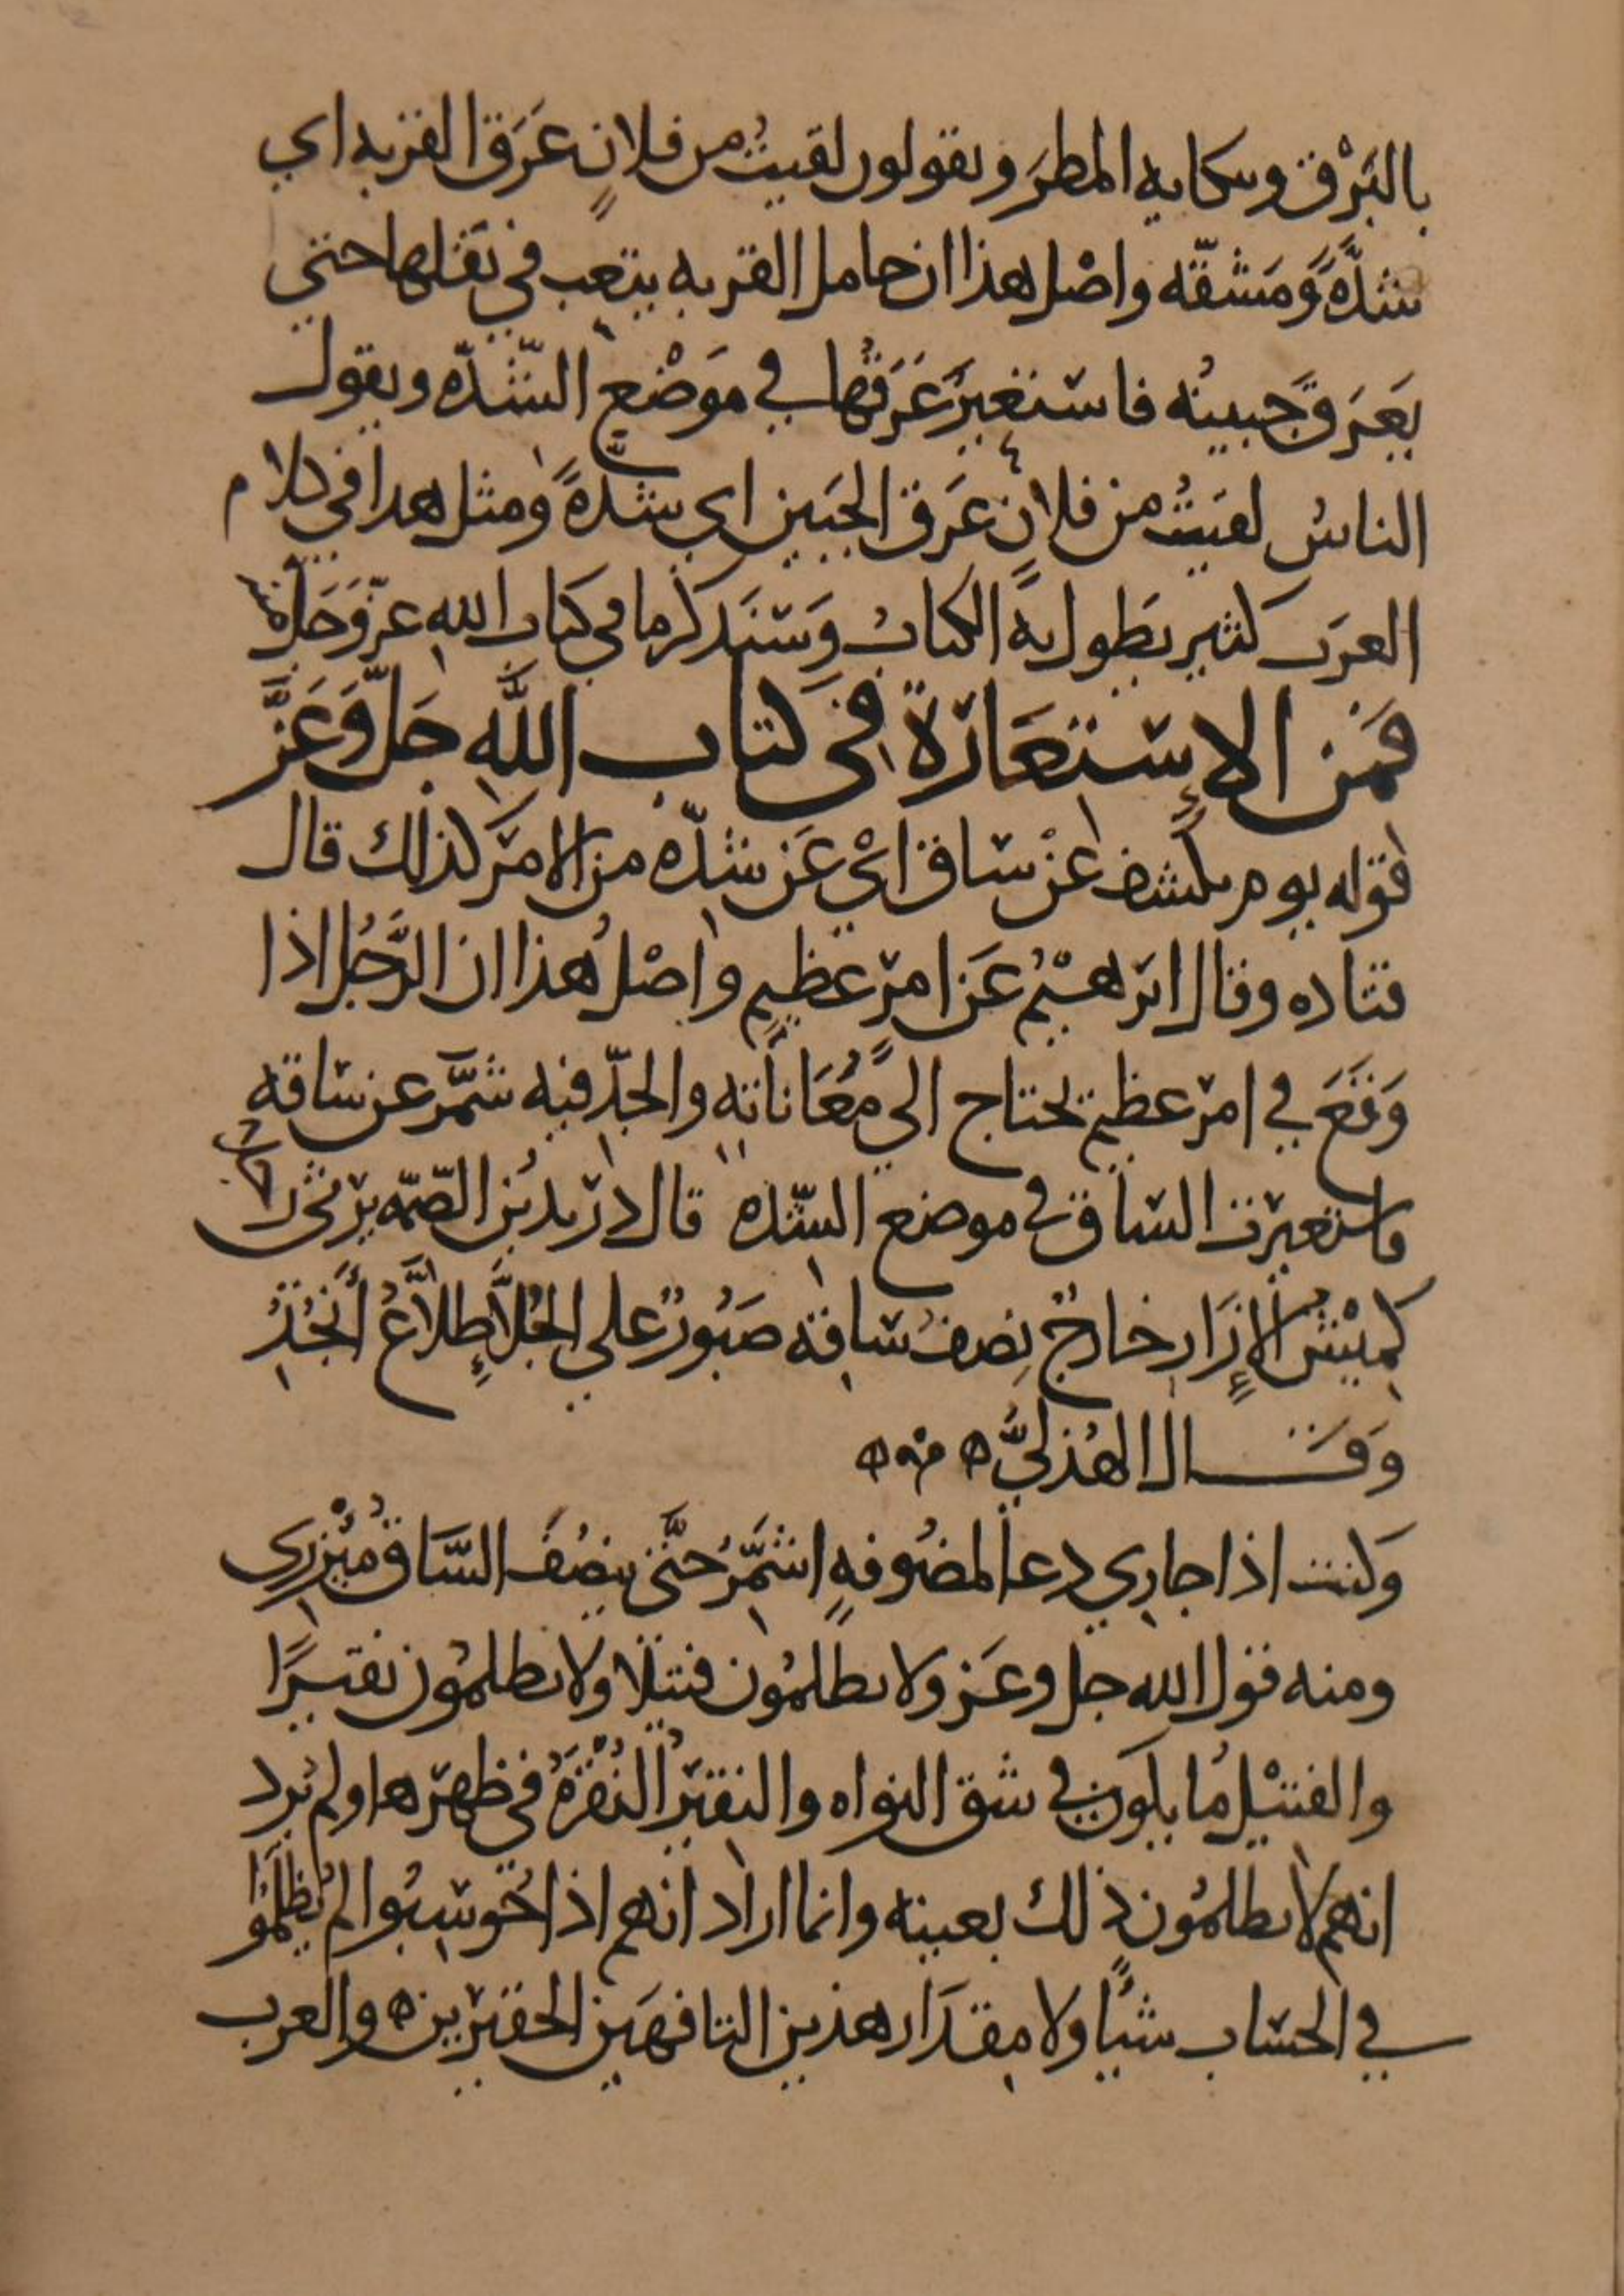 بالبَرْق وبكايه المطرَ ويقولون لقيتُ من فلانٍ عَرَق القربه اي
شدّةً وَمَشقّه واصْل هذا ان حامل القربه يتعب في نقلها حتي
يَعَرَق جَبينُه فاستغيرَ عَرَقُها في مَوْضع الشّدّه ويقول
الناسُ لقيتُ من فلانٍ عَرَق الجَبين اي شدّةً ومثل هذا في كلام
العرَب كثير يَطول به الكتابُ وَسَنَذكر ما في كتاب الله عزّ وَجَلّ منه
فَمن الاِسْتعَارَة في كتاب اللَّه جَلّ وَعَزَّ
قوله يوم يكشف عَنْ سَاق ايْ عَن شدّه من الامر كذلك قال
قتاده وقال ابرهيْمُ عَن امرٍ عظيمٍ واصْلُ هذا ان الرَّجُل اذا
وَقَعَ في امر عظيم يحتاج الي مُعَاناتِه والجدّ فيه شمَّر عن ساقه
فاستعيرت الساق في موضع الشّده قال دُرَيد بن الصّمّه يرثي رجلا
كمِيْشُ الاِزَار خارجٌ نِصفُ ساقه صَبُورٌ علي الجُلَّا طِلاَّعُ أنجُدُ
وَقَال الهُذليُّ
وَكنت اذا جاري دعا لمضُوفهٍ اشمِّرُ حَتَّى ينصُفَ السَّاقَ مئْزَرِى
ومنه قول الله جل وعَز ولا يظلمُون فتيلا ولا يظلمُون نقيرًا
والفتيْل مُا يكَون في شق النواه والنقيْرُ النُقْرَةُ في ظهرها ولم يُرد
انهم لا يظلمُون ذلك بعينه وانما اراد انهم اذا حُوسِبُوا لم يُظلَمُوا
في الحسَاب شيًا ولا مِقدَار هذين التافهَين الحقيرين والعرب